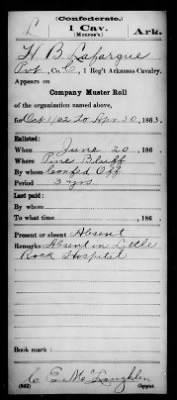 (Confederate.)
L 1 Cav. Ark.
(Monroe's)
H. B. Lafargue
Pvt, Co. C, 1 Reg't Arkansas Cavalry.
Appears on
Company Muster Roll
of the organization named above,
for Oct 1/62 to Apr 30, 1863.
Enlisted:
When June 20, 186
Where Pine Bluff
By whom Confed Off
Period 3 yrs
Last paid:
By whom
To what time , 186
Present or absent Absent
Remarks Absent in Little
Rock Hospital
Book mark:
C. E. McLoughlin
(642) Copyist.